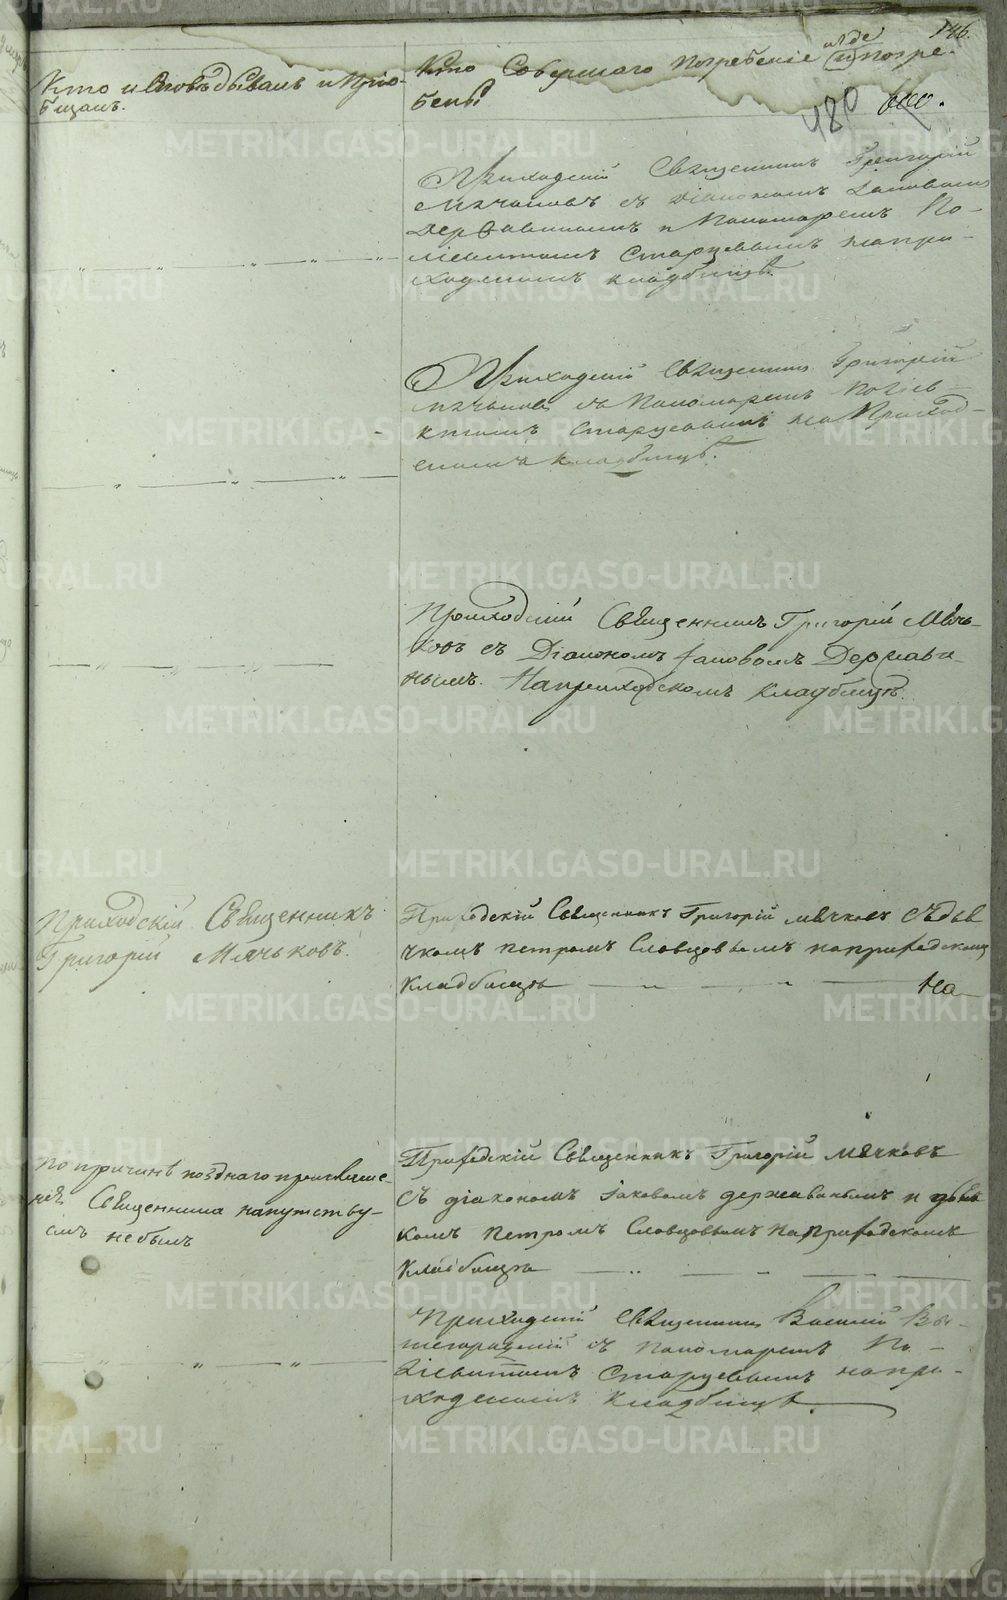 146.
Кто исповѣдывалъ и пріо-
бщалъ.
Кто Совершалъ погребеніе и гдѣ погре-
бены
480
Приходскій Священникъ Григорій
Мячковъ съ Діакономъ Іаковомъ
Державинымъ и Пономаремъ По-
ліевктомъ Старцевымъ на при-
ходскомъ кладбищѣ.
Приходскій Священникъ Григорій
Мячковъ съ Пономаремъ Поліев-
ктомъ Старцевымъ на Приход-
скомъ кладбищѣ.
Приходскій Священникъ Григорій Мячь-
ковъ съ Діакономъ Іаковомъ Держави-
нымъ. На приходскомъ кладбищѣ.
Приходскій Священникъ
Григорій Мячьковъ.
Приходскій Священникъ Григорій Мячковъ съ дья
чкомъ петромъ Словцовымъ на приходскомъ
кладбищѣ
На
по причинѣ позднаго приглаше-
нія Священника напутству-
емъ не былъ
Приходскій Священникъ Григорій мячковъ
съ діакономъ Іаковомъ державинымъ и дья
комъ петромъ Словцовымъ на приходскомъ
кладбищѣ
Приходскій Священникъ Василій Вы-
шегородскій съ пономаремъ По-
ліевктомъ Старцевымъ на при-
ходскомъ кладбищѣ.
METRIKI.GASO-URAL.RU